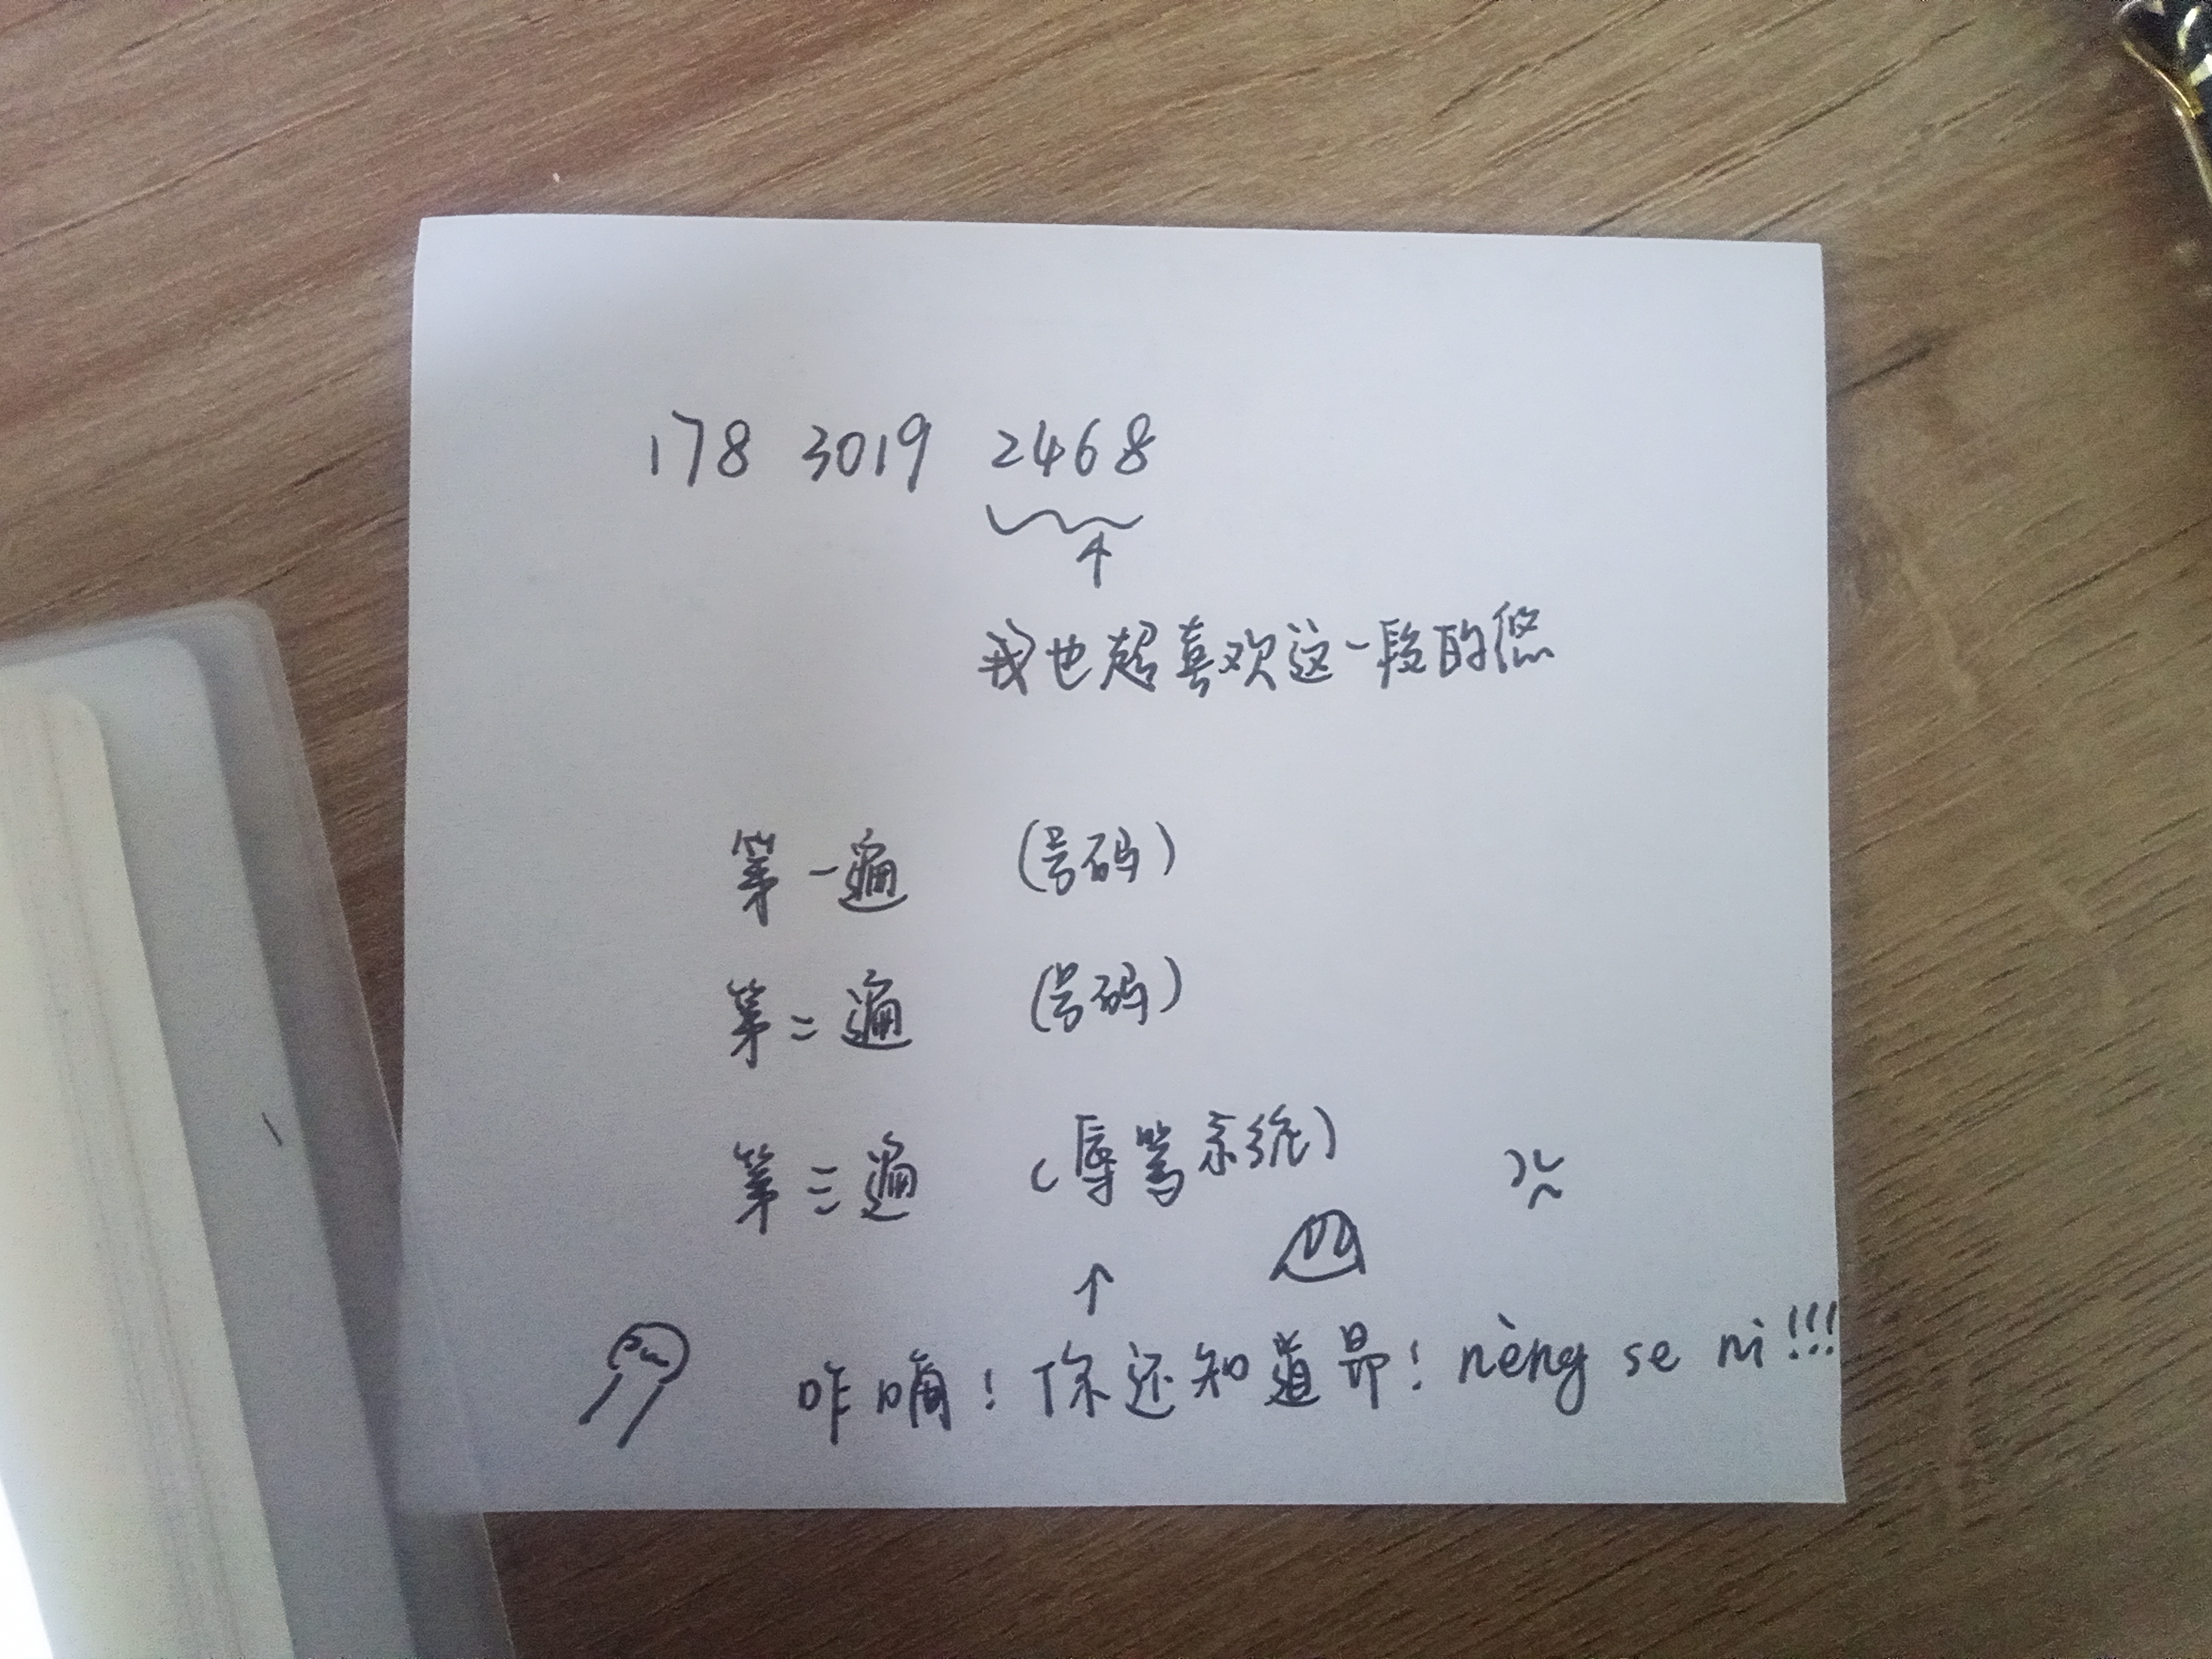 178 3019 2468
我也超喜欢这一段的您
第一遍 (号码)
第二遍 (号码)
第三遍 (辱骂系统)
咋嘀!你还知道昂!nèng se nì!!!